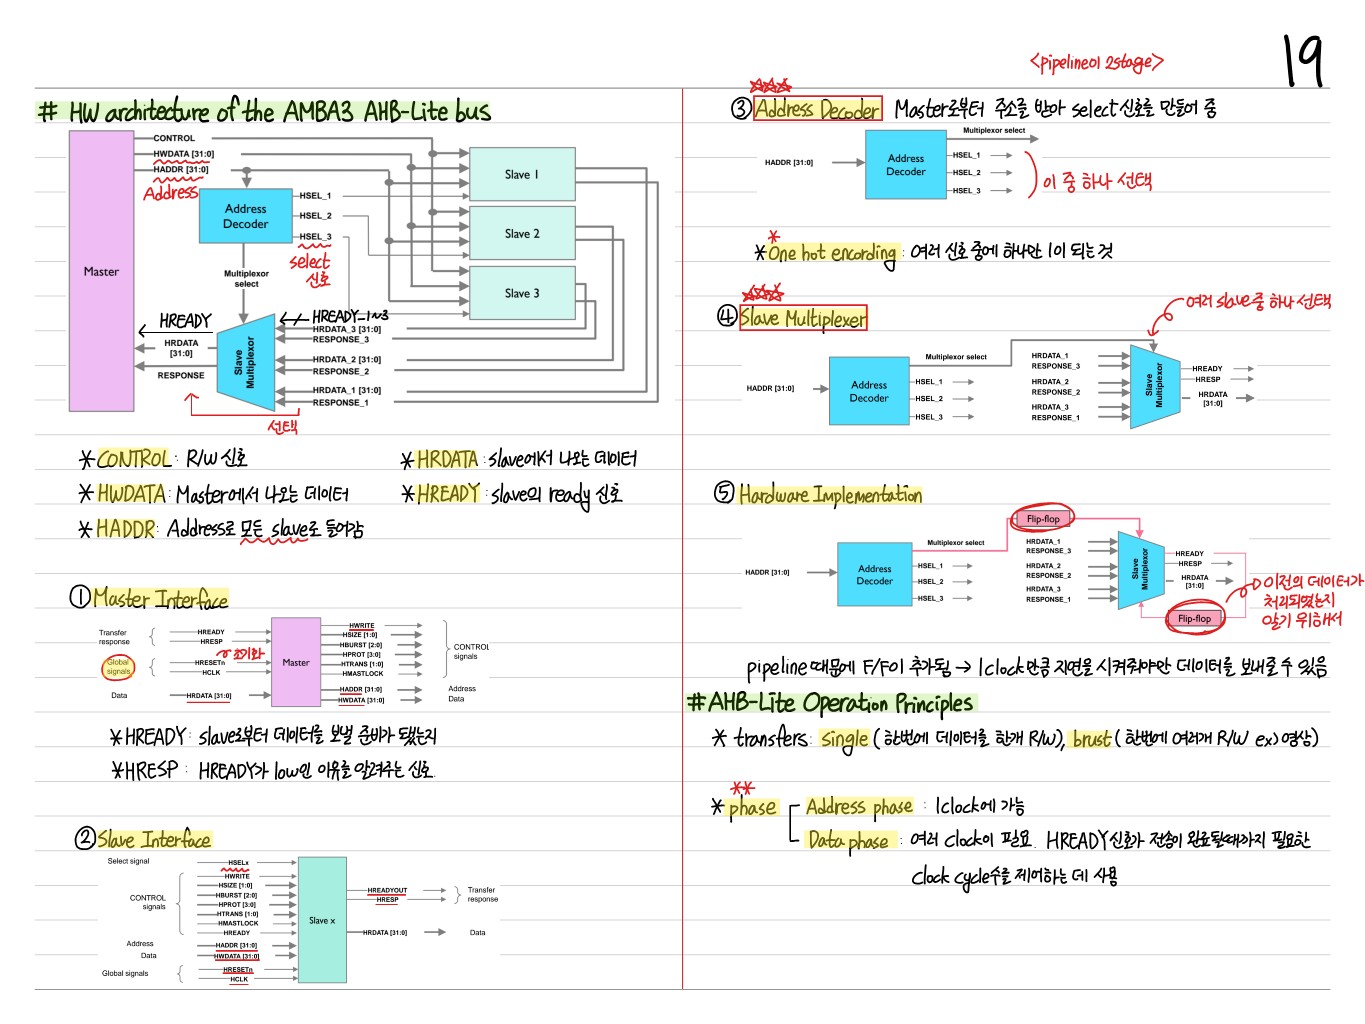 <pipeline이 2stage>
19
# HW architecture of the AMBA3 AHB-Lite bus
CONTROL
HWDATA [31:0]
HADDR [31:0]
Address
Master
Address Decoder
HSEL_1
HSEL_2
HSEL_3
select 신호
Slave 1
Slave 2
Slave 3
Multiplexor select
HREADY
HREADY_1~3
HRDATA [31:0]
RESPONSE
Slave Multiplexor
HRDATA_3 [31:0]
RESPONSE_3
HRDATA_2 [31:0]
RESPONSE_2
HRDATA_1 [31:0]
RESPONSE_1
선택
* CONTROL : R/W 신호
* HRDATA : slave에서 나오는 데이터
* HWDATA : Master에서 나오는 데이터
* HREADY : slave의 ready 신호
* HADDR : Address로 모든 slave로 들어감
① Master Interface
Transfer response
HREADY
HRESP
초기화
Global signals
HRESETn
HCLK
Data
HRDATA [31:0]
Master
HWRITE
HSIZE [1:0]
HBURST [2:0]
HPROT [3:0]
HTRANS [1:0]
HMASTLOCK
CONTROL signals
HADDR [31:0]
Address
HWDATA [31:0]
Data
* HREADY : slave로부터 데이터를 보낼 준비가 됐는지
* HRESP : HREADY가 low인 이유를 알려주는 신호
② Slave Interface
Select signal
HSELx
CONTROL signals
HWRITE
HSIZE [1:0]
HBURST [2:0]
HPROT [3:0]
HTRANS [1:0]
HMASTLOCK
HREADY
Address
HADDR [31:0]
Data
HWDATA [31:0]
Global signals
HRESETn
HCLK
Slave x
HREADYOUT
HRESP
Transfer response
HRDATA [31:0]
Data
③ Address Decoder Master로부터 주소를 받아 select신호를 만들어 줌
HADDR [31:0]
Address Decoder
Multiplexor select
HSEL_1
HSEL_2
HSEL_3
이 중 하나 선택
* One hot encording : 여러 신호 중에 하나만 1이 되는 것
④ Slave Multiplexer
여러 slave중 하나 선택
HADDR [31:0]
Address Decoder
Multiplexor select
HSEL_1
HSEL_2
HSEL_3
HRDATA_1
RESPONSE_3
HRDATA_2
RESPONSE_2
HRDATA_3
RESPONSE_1
Slave Multiplexor
HREADY
HRESP
HRDATA [31:0]
⑤ Hardware Implementation
Flip-flop
HADDR [31:0]
Address Decoder
Multiplexor select
HSEL_1
HSEL_2
HSEL_3
HRDATA_1
RESPONSE_3
HRDATA_2
RESPONSE_2
HRDATA_3
RESPONSE_1
Slave Multiplexor
HREADY
HRESP
HRDATA [31:0]
Flip-flop
이전의 데이터가
처리되었는지
알기 위해서
pipeline 때문에 F/F이 추가됨 → 1clock만큼 지연을 시켜줘야만 데이터를 보내줄 수 있음
# AHB-Lite Operation Principles
* transfers : single ( 한번에 데이터를 한개 R/W), brust ( 한번에 여러개 R/W ex) 영상)
* phase
Address phase : 1clock에 가능
Data phase : 여러 clock이 필요. HREADY신호가 전송이 완료될때까지 필요한
clock cycle수를 제어하는 데 사용